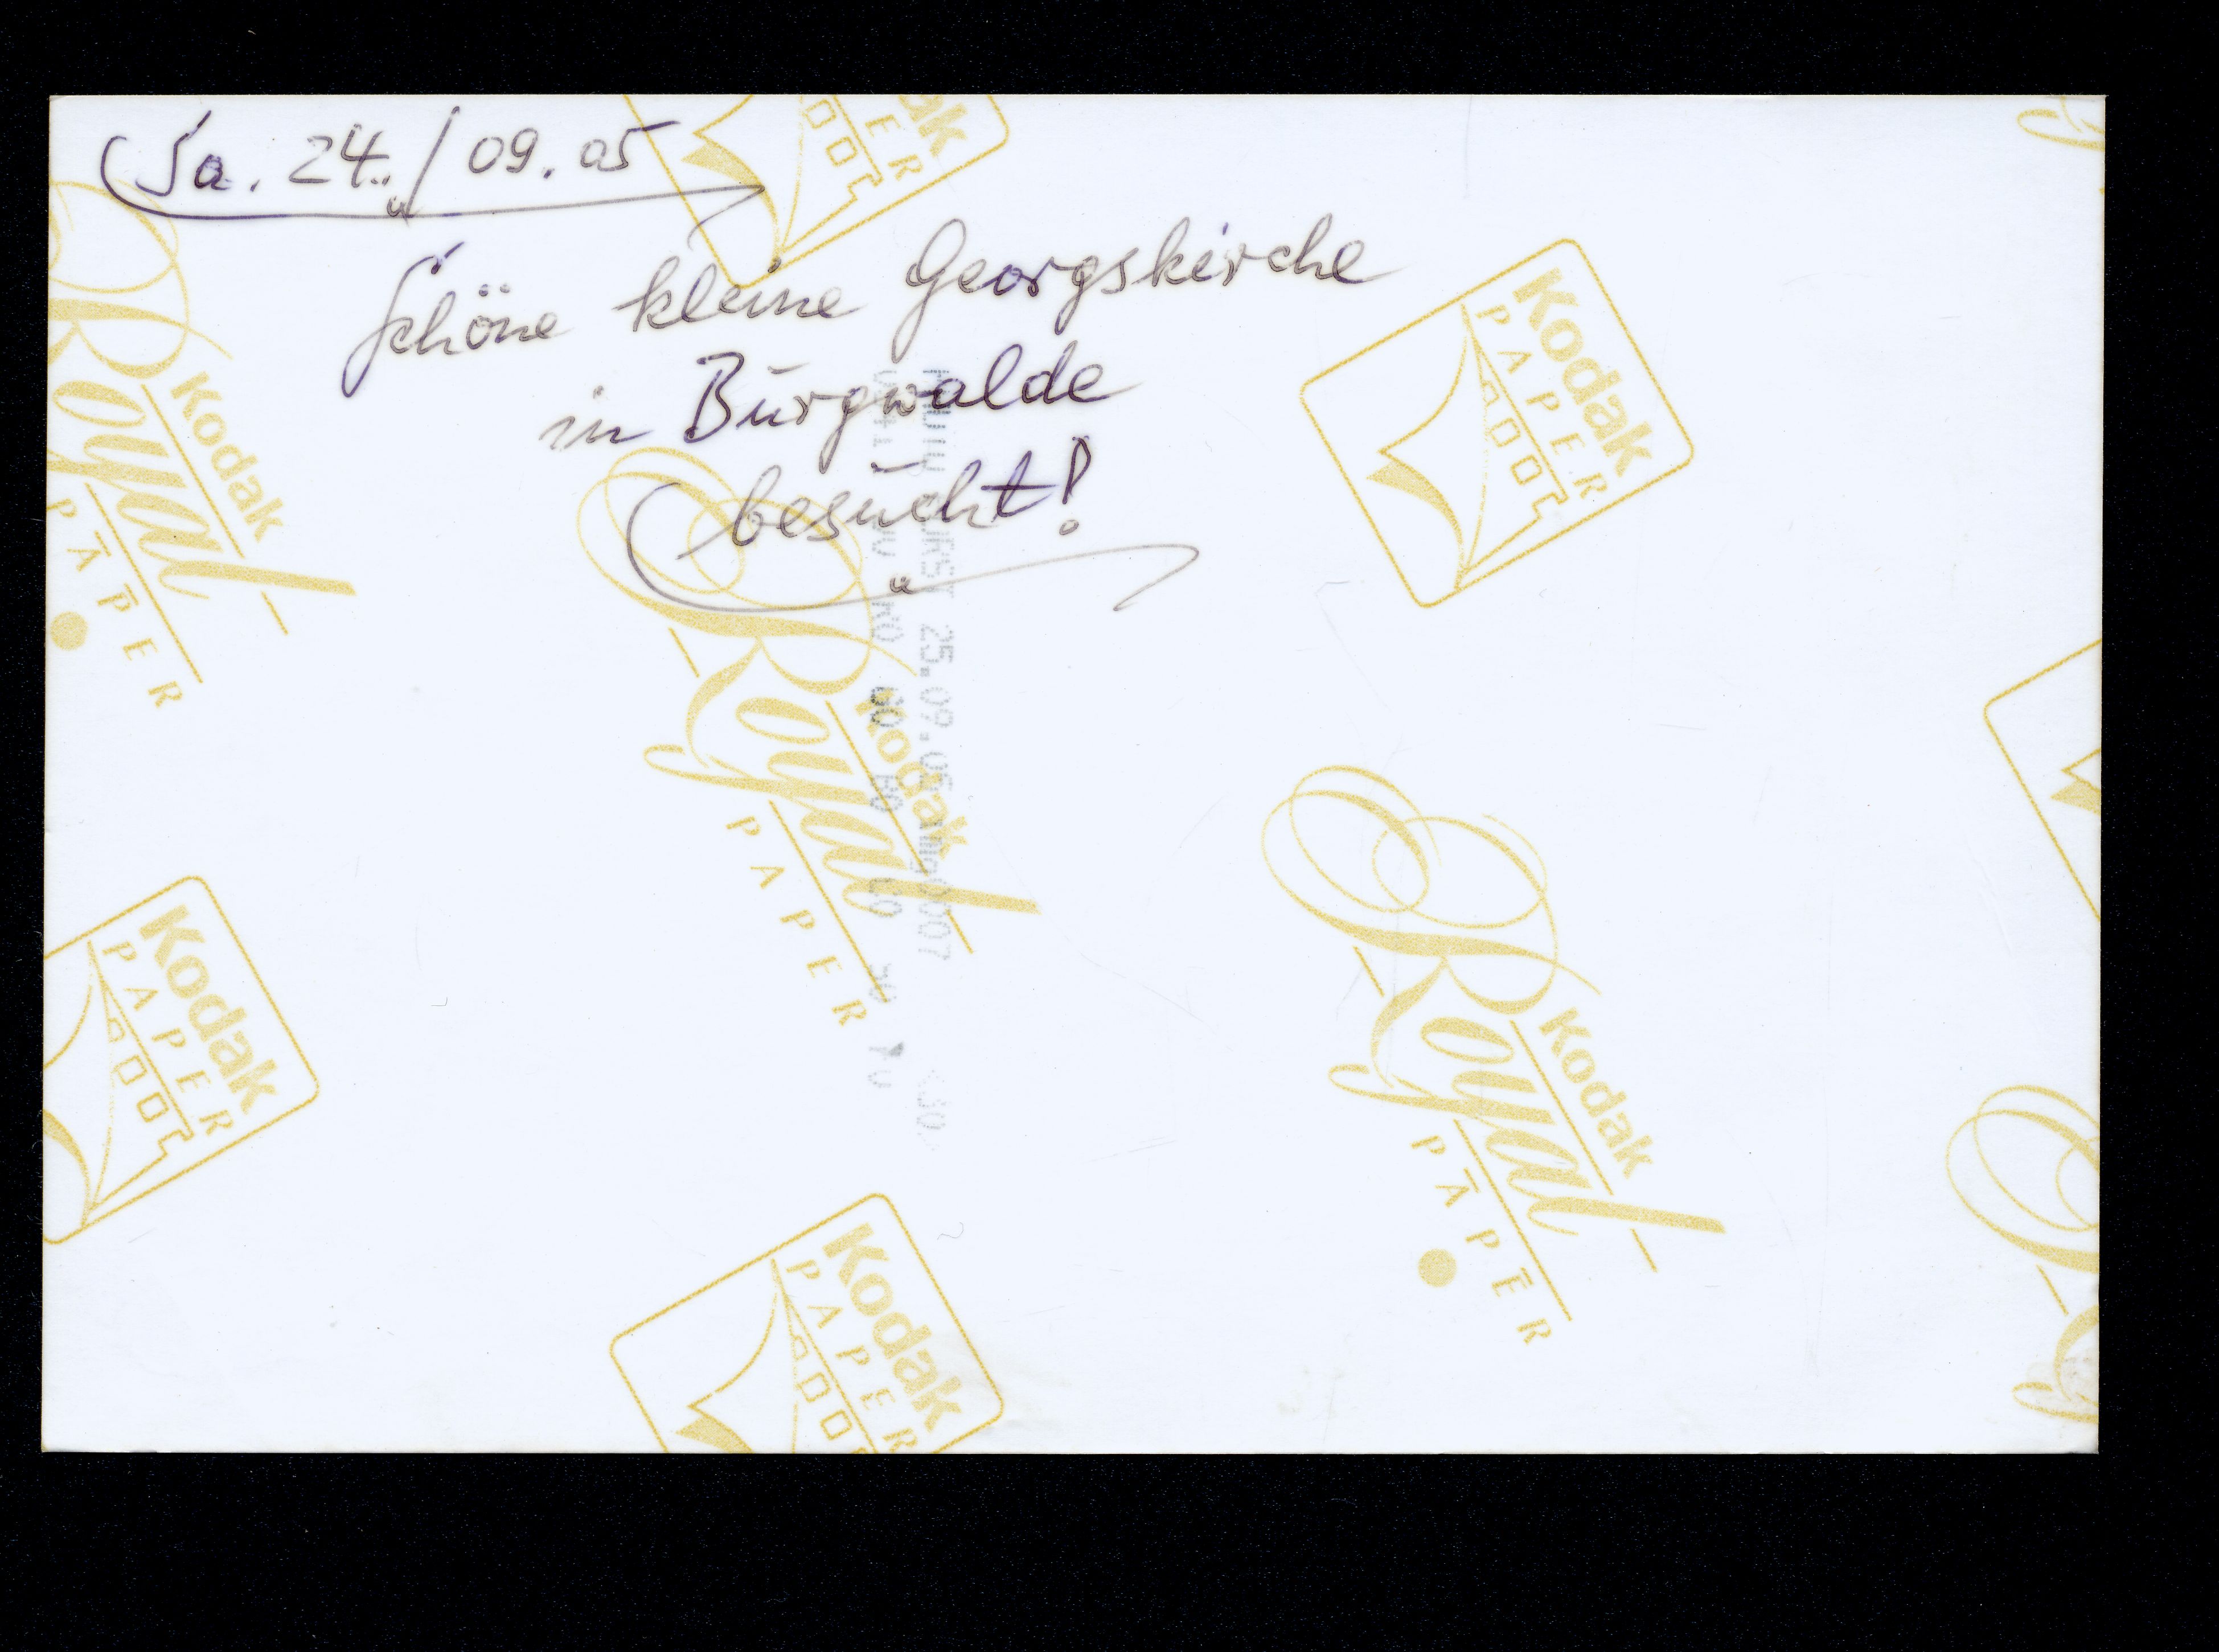 Sa. 24./09.05
Schöne kleine Georgskirche
in Burgwalde
besucht!
Kodak
Royal
PAPER
Kodak
PAPER
Kodak
Royal
PAPER
Kodak
PAPER
Kodak
Royal
PAPER
Kodak
PAPER
25.09.05